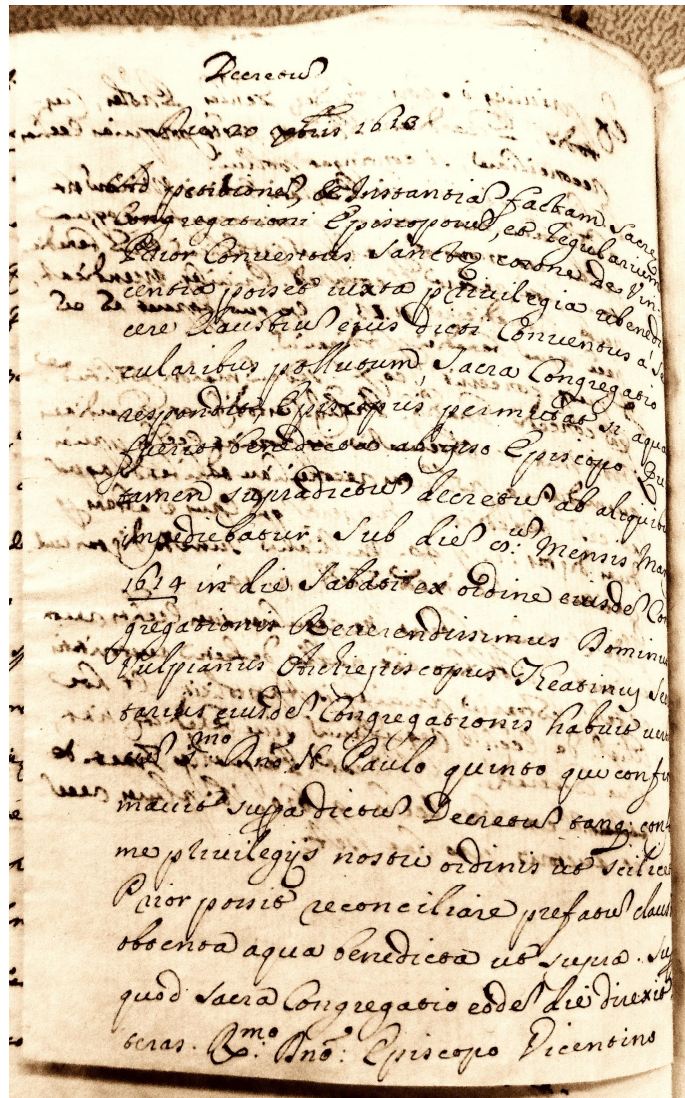 Decretu
Die 20 xbris 1613
Ad petitione, & Instantia factam Sacre
Congregationi Episcoporu, et Regularium
Prior Conventus Sancte corone de Vin
centia posset iuxta privilegia rebenedi
cere claustru eius dicti Conventus a Se
cularibus pollutum, Sacra Congregatio
respondit Episcopus permittat si aqua
fuerit benedicta ab ipso Episcopo
tamen supradictu decretu ab aliquibu
impediebatur. Sub die mensis Mar
1614 in die Sabati ex ordine eiusde Con
gregationis Reverendissimus Dominus
Vulpianus Archiepiscopus Theatinus Secre
tarius eiusde Congregationis habuit verbu
cu S.mo Dno N. Paulo quinto qui confir
mavit supradictu Decretu tanq confor
me privilegijs nostri ordinis ut scilicet
Prior possit reconciliare prefatu claust
obtenta aqua benedicta ut supra. Sup
quod Sacra Congregatio eode die direxit
teras. R.mo Dno: Episcopo Vicentino